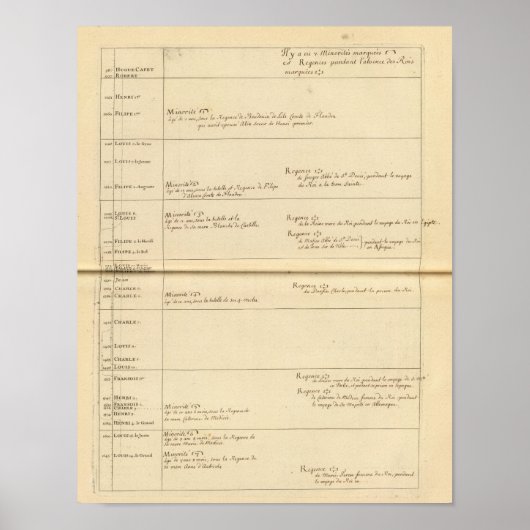 Il y a eu 7 Minorités marquées
Regences pendant l'absence des Rois
marquées
987 HUGUE CAPET
ROBERT
HENRI 1er
1060 FILIPE 1er
Minorité
âgé de 7 ans, sous la Regence de Baudouin de Lile Comte de Flandre
qui avoit epousé Alix Soeur de Henri premier.
LOUIS 6. le Gros
LOUIS 7. le Jeune
Regence
de Suger Abbé de St. Denis, pendant le voyage
du Roi a la terre Sainte.
FILIPE 2. Auguste
Minorité
âgé de 15 ans, sous la tutelle et Regence de Filipe
d'Alsace Comte de Flandre
LOUIS 8.
S. LOUIS
Minorité
âgé de 12 ans, sous la tutelle et la
Regence de sa mere Blanche de Castille.
Regence
de la Reine mere du Roi pendant le voyage du Roi en Egipte.
FILIPE 3. le Hardi
FILIPE 4. le Bel
Regence
de Matieu Abbé de St. Denis
pendant le voyage du Roi
en Afrique.
JEAN
CHARLE 5.
CHARLE 6.
Regence
du Daufin Charle, pendant la prison du Roi.
Minorité
âgé de 12 ans, sous la tutelle de ses 4 oncles
CHARLE 7.
LOUIS 11.
CHARLE 8.
LOUIS 12.
FRANÇOIS 1er
Regence
HENRI 2.
FRANÇOIS 2.
CHARLE 9.
HENRI 3.
HENRI 4. le Grand
Regence
de Caterine de Medicis, femme du Roi, pendant
le voyage de Sa Majesté en Allemagne.
Minorité
âgé de 10 ans 6 mois, sous la Regence de
sa mere Caterine de Medicis.
LOUIS 13. le Juste
Minorité
âgé de 8 ans 8 mois, sous la Regence de
sa mere Marie de Medicis.
1643 LOUIS 14. le Grand
Minorité
sous la Regence de
sa mere Anne d'Autriche
Regence
de Marie Terese femme du Roi, pendant
le voyage du Roi